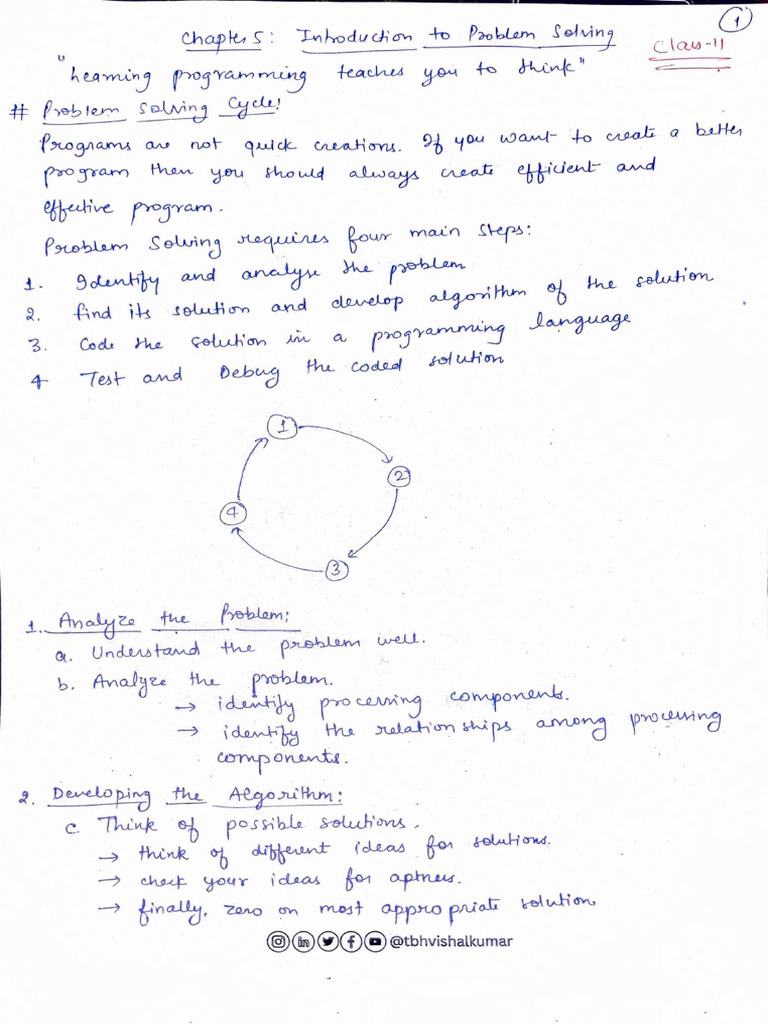 1
Chapter 5: Introduction to Problem Solving
Class-11
"Learning programming teaches you to think"
# Problem Solving Cycle:
Programs are not quick creations. If you want to create a better
program then you should always create efficient and
effective program.
Problem Solving requires four main steps:
1. Identify and analyse the problem
2. find its solution and develop algorithm of the solution
3. Code the solution in a programming language
4 Test and Debug the coded solution
1
2
3
4
1. Analyze the Problem:
a. Understand the problem well.
b. Analyze the problem.
→ identify processing components.
→ identify the relationships among processing
components.
2. Developing the Algorithm:
c. Think of possible solutions.
→ think of different ideas for solutions.
→ check your ideas for aptness.
→ finally, zero on most appropriate solution
@tbhvishalkumar